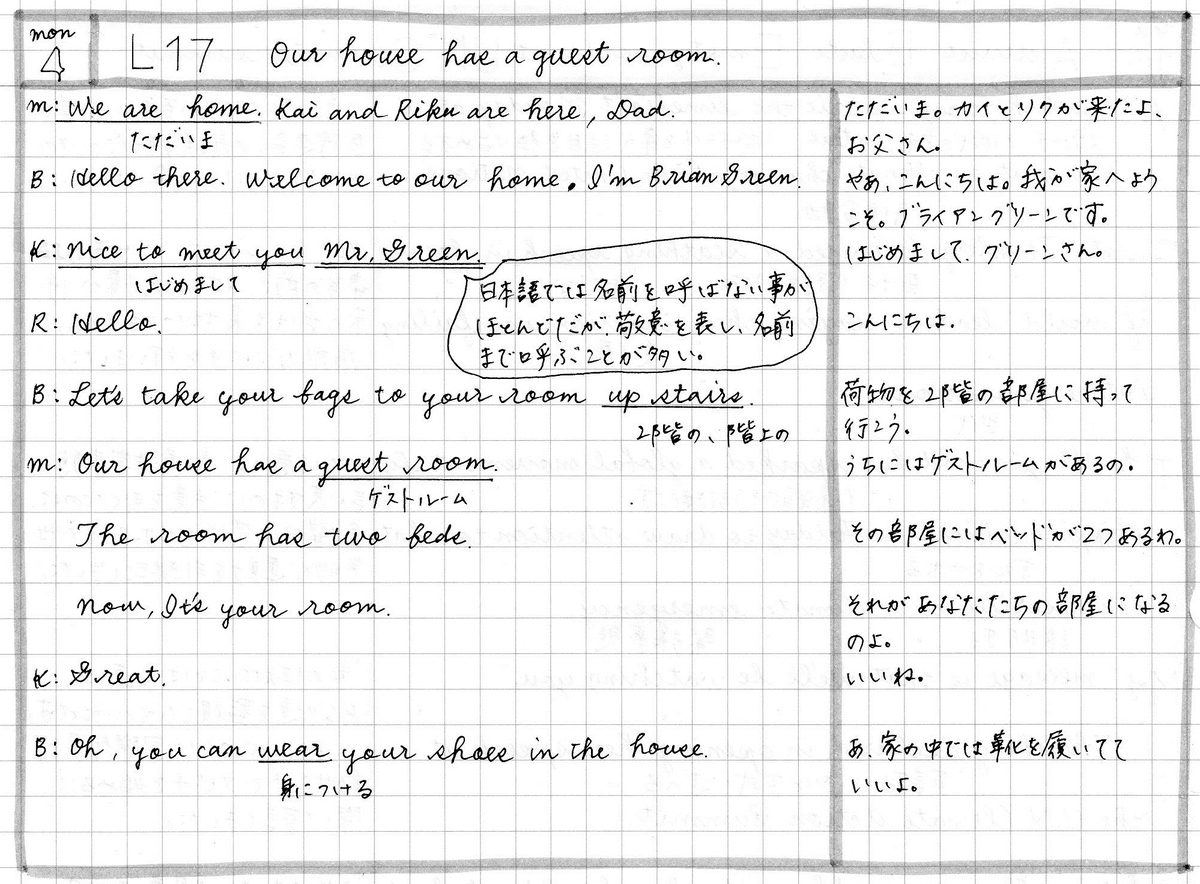 mon
4
L17 Our house has a guest room.
m: We are home. Kai and Riku are here, Dad.
ただいま
B: Hello there. Welcome to our home. I'm Brian Green.
K: Nice to meet you Mr. Green.
はじめまして
日本語では名前を呼ばない事が
ほとんどだが、敬意を表し、名前
まで呼ぶことが多い。
R: Hello.
B: Let's take your bags to your room up stairs.
2階の、階上の
m: Our house has a guest room.
ゲストルーム
The room has two beds.
Now, It's your room.
K: Great.
B: Oh, you can wear your shoes in the house.
身につける
ただいま。カイとリクが来たよ、
お父さん。
やあ、こんにちは。我が家へよう
こそ。ブライアングリーンです。
はじめまして、グリーンさん。
こんにちは.
荷物を2階の部屋に持って
行こう。
うちにはゲストルームがあるの。
その部屋にはベッドが2つあるわ。
それがあなたたちの部屋になる
のよ。
いいね。
あ、家の中では革化を履いてて
いいよ。